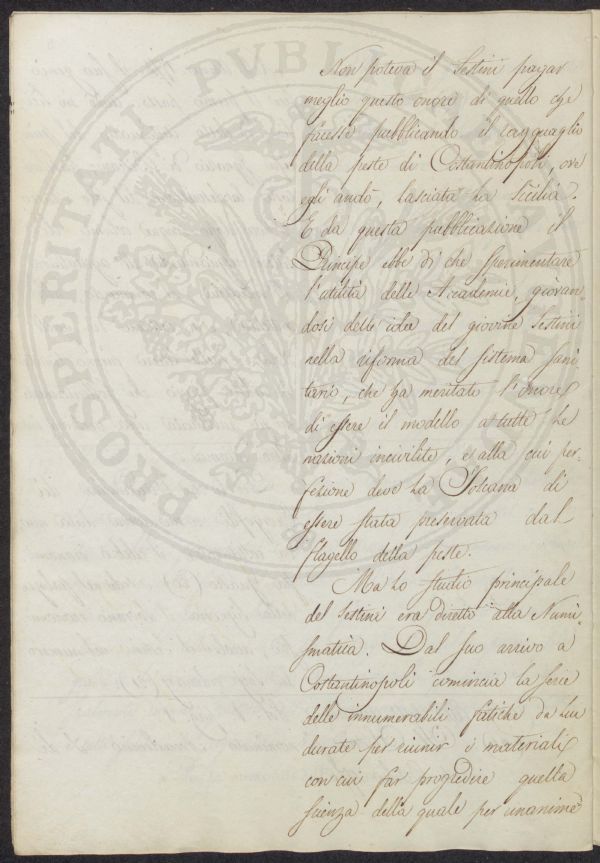 Non poteva il Sestini pagar
meglio questo onore di quello che
facesse pubblicando il ragguaglio
della peste di Costantinopoli, ove
egli andò, lasciata la Sicilia.
E da questa pubblicazione il
Principe ebbe di che sperimentare
l'utilità delle Accademie, giovan-
dosi delle idee del giovine Sestini
nella riforma del sistema sani-
tario, che ha meritato l'onore
di essere il modello a tutte le
nazioni incivilite, e alla cui per-
fezione deve la Toscana di
essere stata preservata dal
flagello della peste.
Ma lo studio principale
del Sestini era diretto alla Numi-
smatica. Dal suo arrivo a
Costantinopoli comincia la serie
delle innumerabili fatiche da lui
durate per riunir i materiali
con cui far progredire quella
scienza della quale per unanime
PROSPERITATI PVBLICAE AVGENDAE